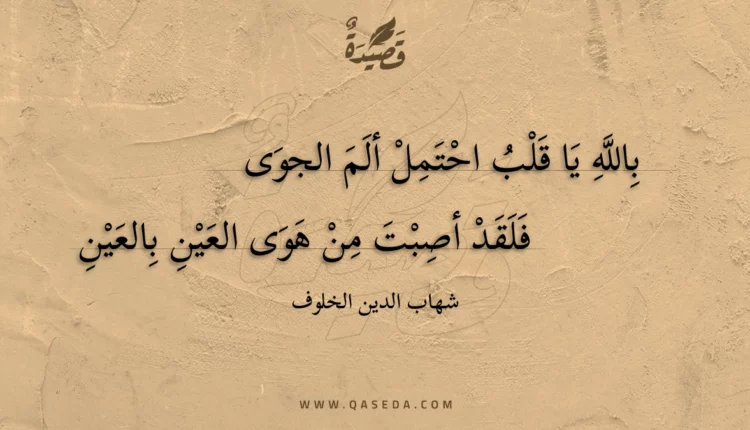 قَصِيدَةٌ
بِاللَّهِ يَا قَلْبُ احْتَمِلْ ألَمَ الجوَى
فَلَقَدْ أصِبْتَ مِنْ هَوَى العَيْنِ بِالعَيْنِ
شهاب الدين الخلوف
WWW.QASEDA.COM